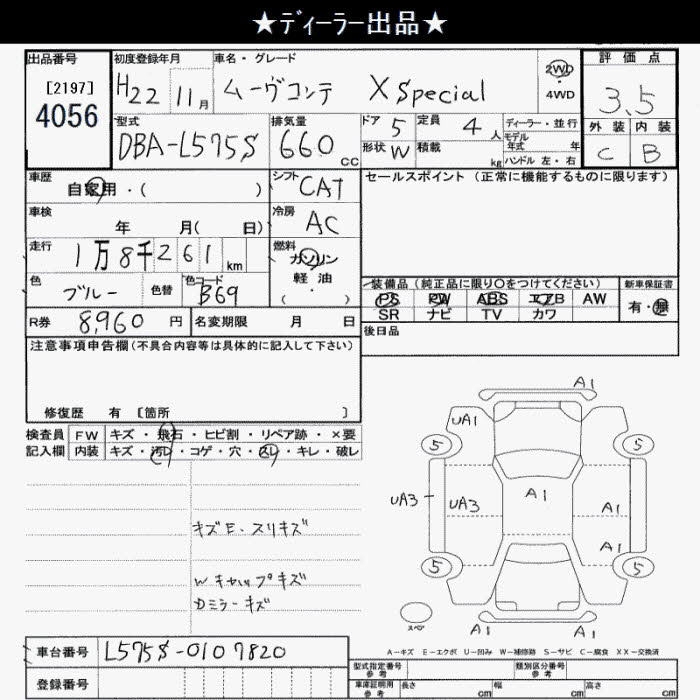 ★ディーラー出品★
出品番号 初度登録年月 車名・グレード 評価点
[2197] 4056 H22 11月 ムーヴコンテ X Special 2WD 4WD 3.5
型式 排気量 ドア 5 定員 4人 ディーラー・並行 外装 内装
DBA-L575S 660cc 形状 W 積載 kg モデル年式 年 ハンドル 左・右 C B
車歴 自家用・( ) シフト CAT セールスポイント (正常に機能するものに限ります)
車検 年 月( 日) 冷房 AC
走行 1万8千261km 燃料 ガソリン 軽油 ( ・ )
色 ブルー 色替 色コード B69 装備品 (純正品に限り〇をつけてください) 新車保証書
PS PW ABS エアB AW 有・無
R券 8,960円 名変期限 月 日 SR ナビ TV カワ
注意事項申告欄 (不具合内容等は具体的に記入して下さい) 後日品
修復歴 有 [箇所 ]
検査員 FW キズ・飛石・ヒビ割・リペア跡・×要
記入欄 内装 キズ・汚レ・コゲ・穴・スレ・キレ・破レ
A1
UA1
5 5
UA3 UA3 A1 A1
A1
5 5
スペア A1 A1
キズE・スリキズ
Wキャップキズ
Dミラーキズ
A-キズ E-エクボ U-凹み W-補修跡 S-サビ C-腐食 XX-交換済
車台番号 L575S-0107820
型式指定番号 参考 類別区分番号 参考
登録番号 車庫証明用 参考 長さ cm 幅 cm 高さ cm